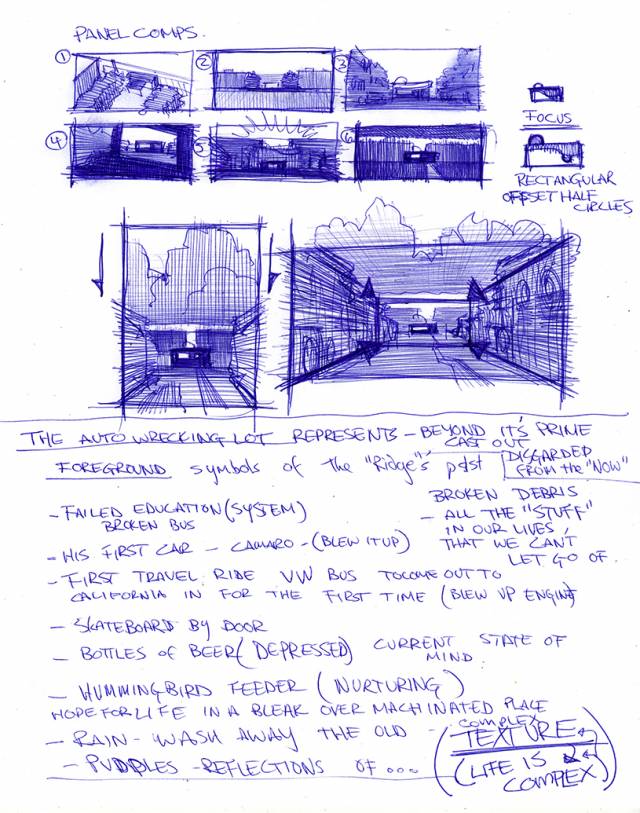 PANEL COMPS.
1
2
3
4
5
6
FOCUS
RECTANGULAR
OFFSET HALF
CIRCLES
THE AUTO WRECKING LOT REPRESENTS - BEYOND IT'S PRIME
CAST OUT
FOREGROUND symbols of the "Ridge's" past
DISGARDED
FROM the "NOW"
- FAILED EDUCATION (SYSTEM)
BROKEN BUS
BROKEN DEBRIS
- ALL THE "STUFF"
IN OUR LIVES,
THAT WE CAN'T
LET GO OF.
- HIS FIRST CAR - CAMARO - (BLEW IT UP)
- FIRST TRAVEL RIDE VW BUS TO COME OUT TO
CALIFORNIA IN FOR THE FIRST TIME (BLEW UP ENGINE)
- SKATEBOARD BY DOOR
- BOTTLES OF BEER (DEPRESSED) CURRENT STATE OF
MIND
- HUMMINGBIRD FEEDER (NURTURING)
HOPE FOR LIFE IN A BLEAK OVER MACHINATED PLACE
- RAIN - WASH AWAY THE OLD -
- PUDDLES - REFLECTIONS OF ...
COMPLEX
TEXTURE
(LIFE IS
COMPLEX)